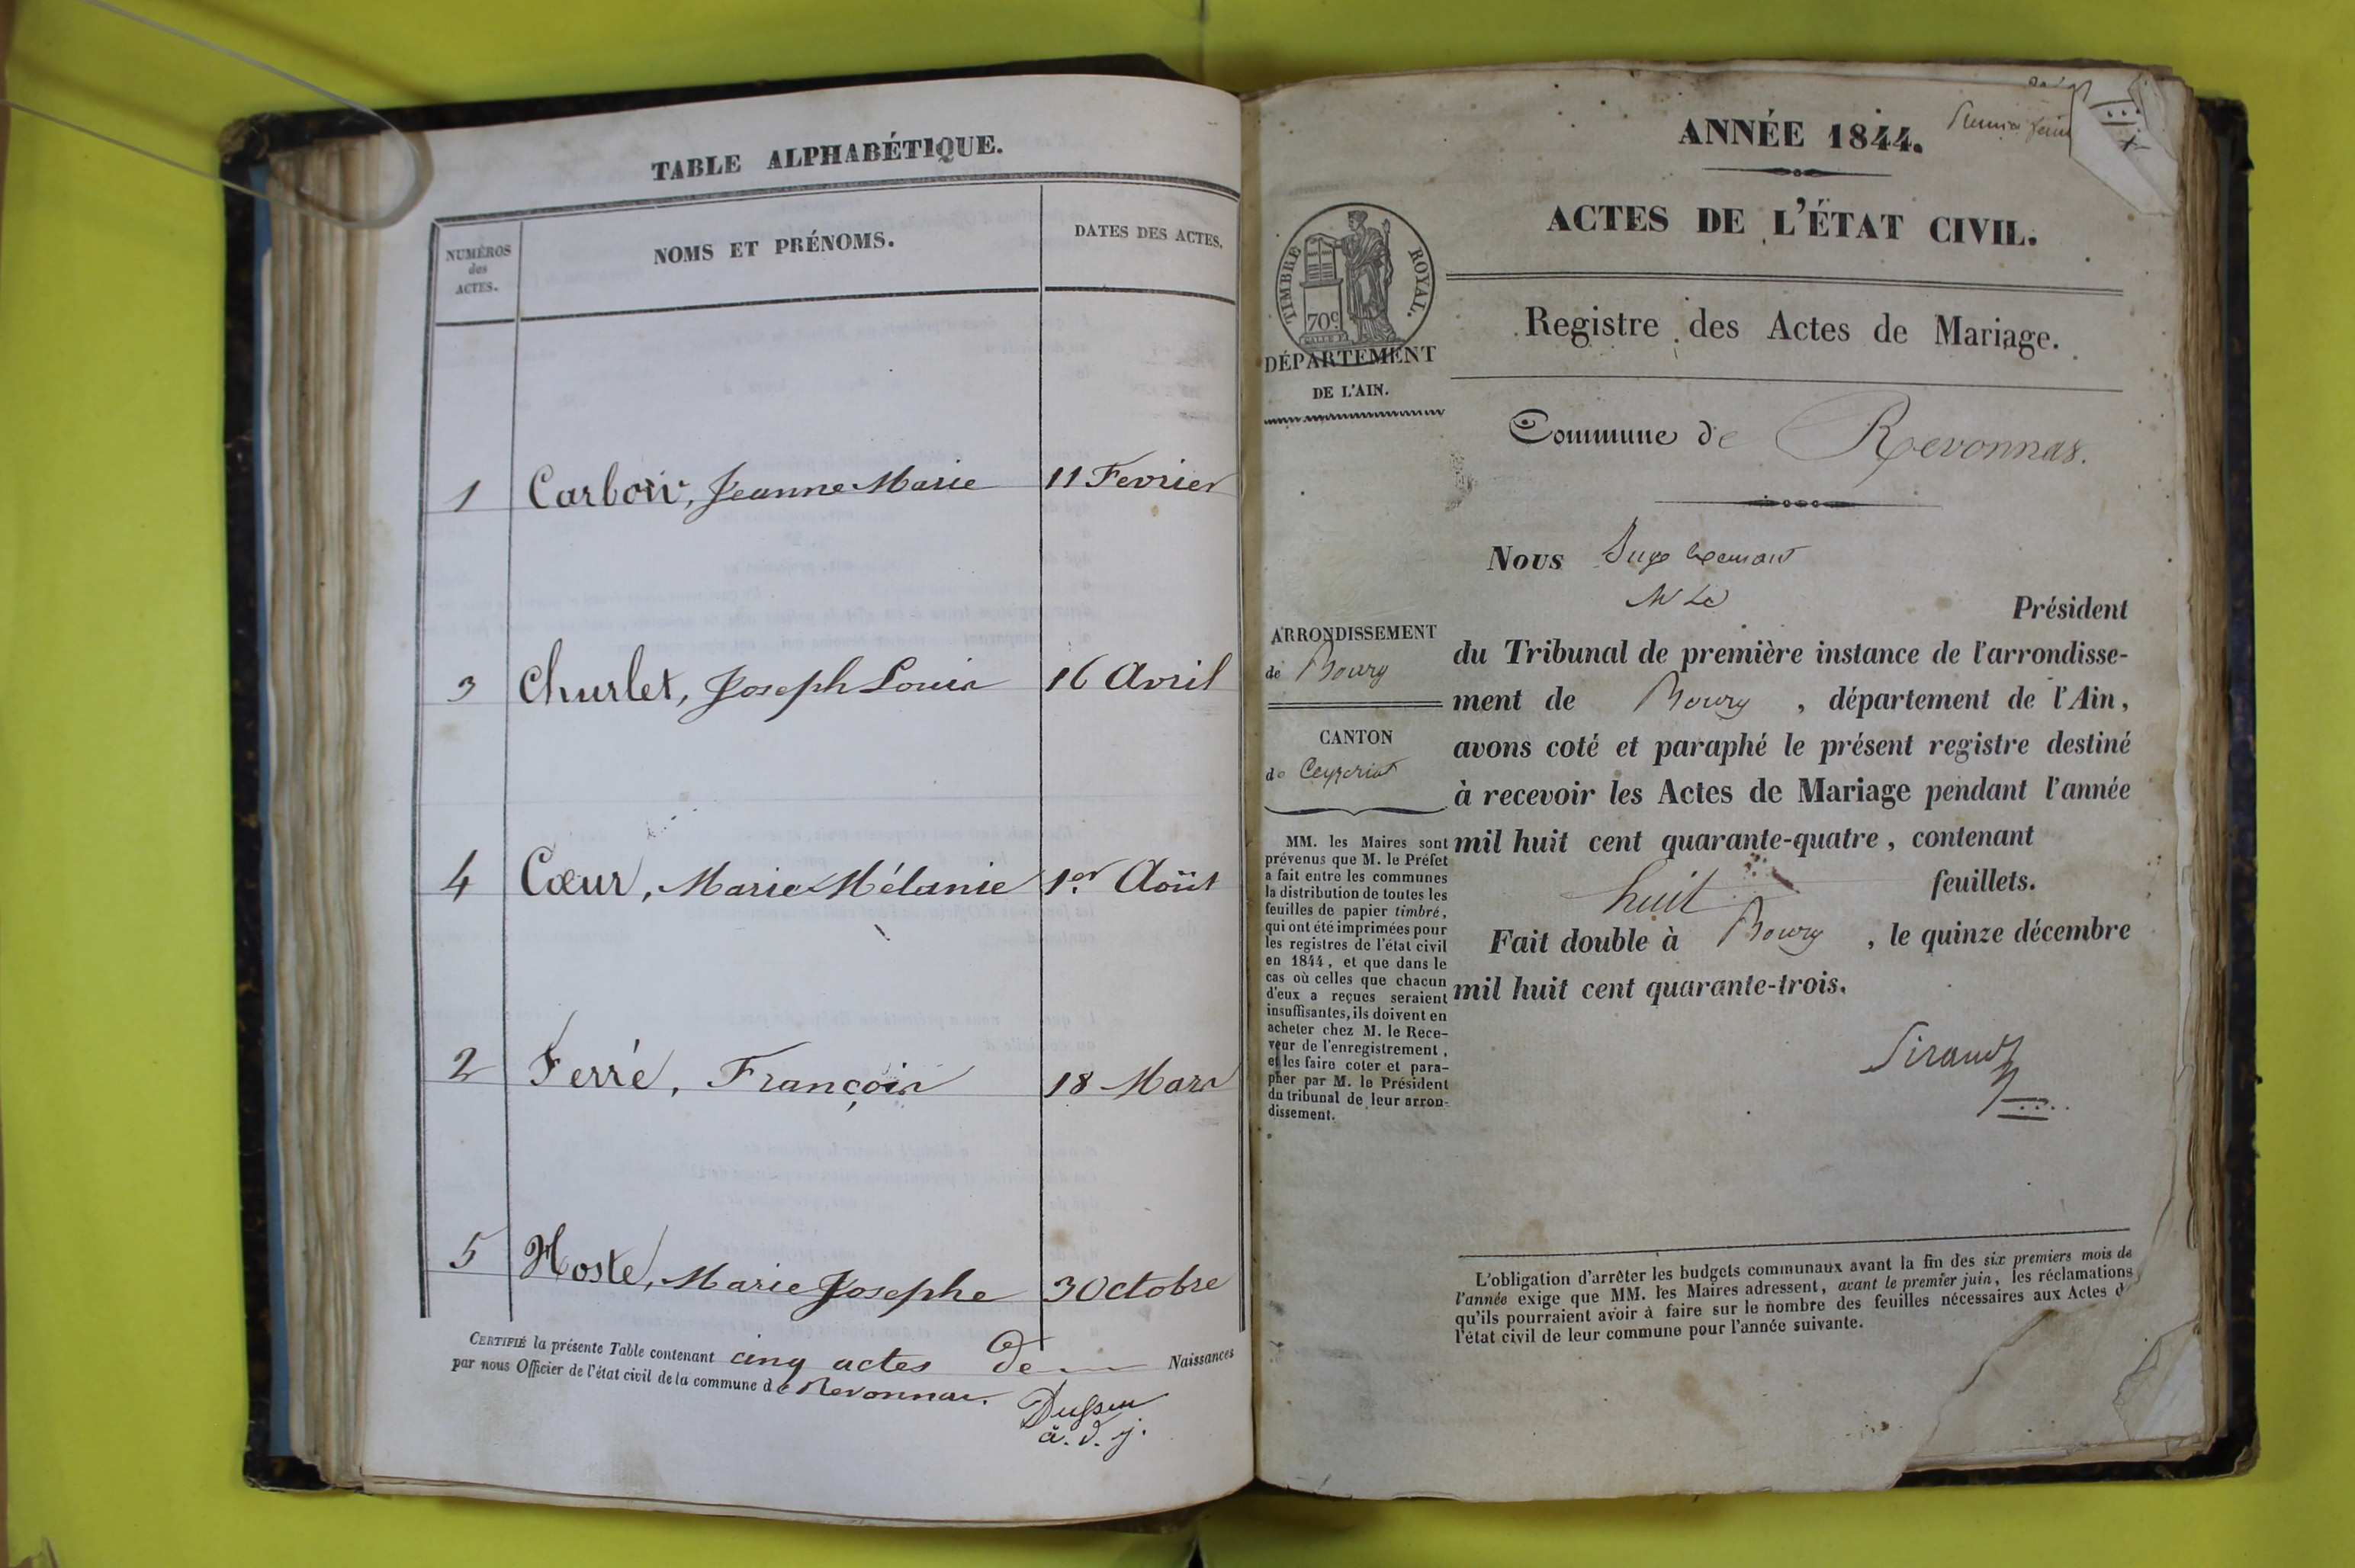 TABLE ALPHABÉTIQUE.
NUMÉROS
des
ACTES.
NOMS ET PRÉNOMS.
DATES DES ACTES.
1 Carboir, Jeanne Marie 11 Fevrier
3 Churlet, Joseph Louis 16 Avril
4 Cœur, Marie Mélanie 1er Août
2 Ferré, François 18 Mars
5 Hoste, Marie Josephe 3 Octobre
CERTIFIÉ la présente Table contenant cinq actes de Naissances
par nous Officier de l'état civil de la commune de Revonnas.
a. d. j.
ANNÉE 1844.
Premier
ACTES DE L'ÉTAT CIVIL.
TIMBRE ROYAL.
70c
DÉPARTEMENT
DE L'AIN.
Registre des Actes de Mariage.
Commune de Revonnas.
Nous Juge
Président
ARRONDISSEMENT
de Bourg
CANTON
de Ceyzeriat
du Tribunal de première instance de l'arrondisse-
ment de Bourg, département de l'Ain,
avons coté et paraphé le présent registre destiné
à recevoir les Actes de Mariage pendant l'année
mil huit cent quarante-quatre, contenant
huit feuillets.
Fait double à Bourg, le quinze décembre
mil huit cent quarante-trois.
Sirand
MM. les Maires sont
prévenus que M. le Préfet
a fait entre les communes
la distribution de toutes les
feuilles de papier timbré,
qui ont été imprimées pour
les registres de l'état civil
en 1844, et que dans le
cas où celles que chacun
d'eux a reçues seraient
insuffisantes, ils doivent en
acheter chez M. le Rece-
veur de l'enregistrement,
et les faire coter et para-
pher par M. le Président
du tribunal de leur arron-
dissement.
L'obligation d'arrêter les budgets communaux avant la fin des six premiers mois de
l'année exige que MM. les Maires adressent, avant le premier juin, les réclamations
qu'ils pourraient avoir à faire sur le nombre des feuilles nécessaires aux Actes d
l'état civil de leur commune pour l'année suivante.